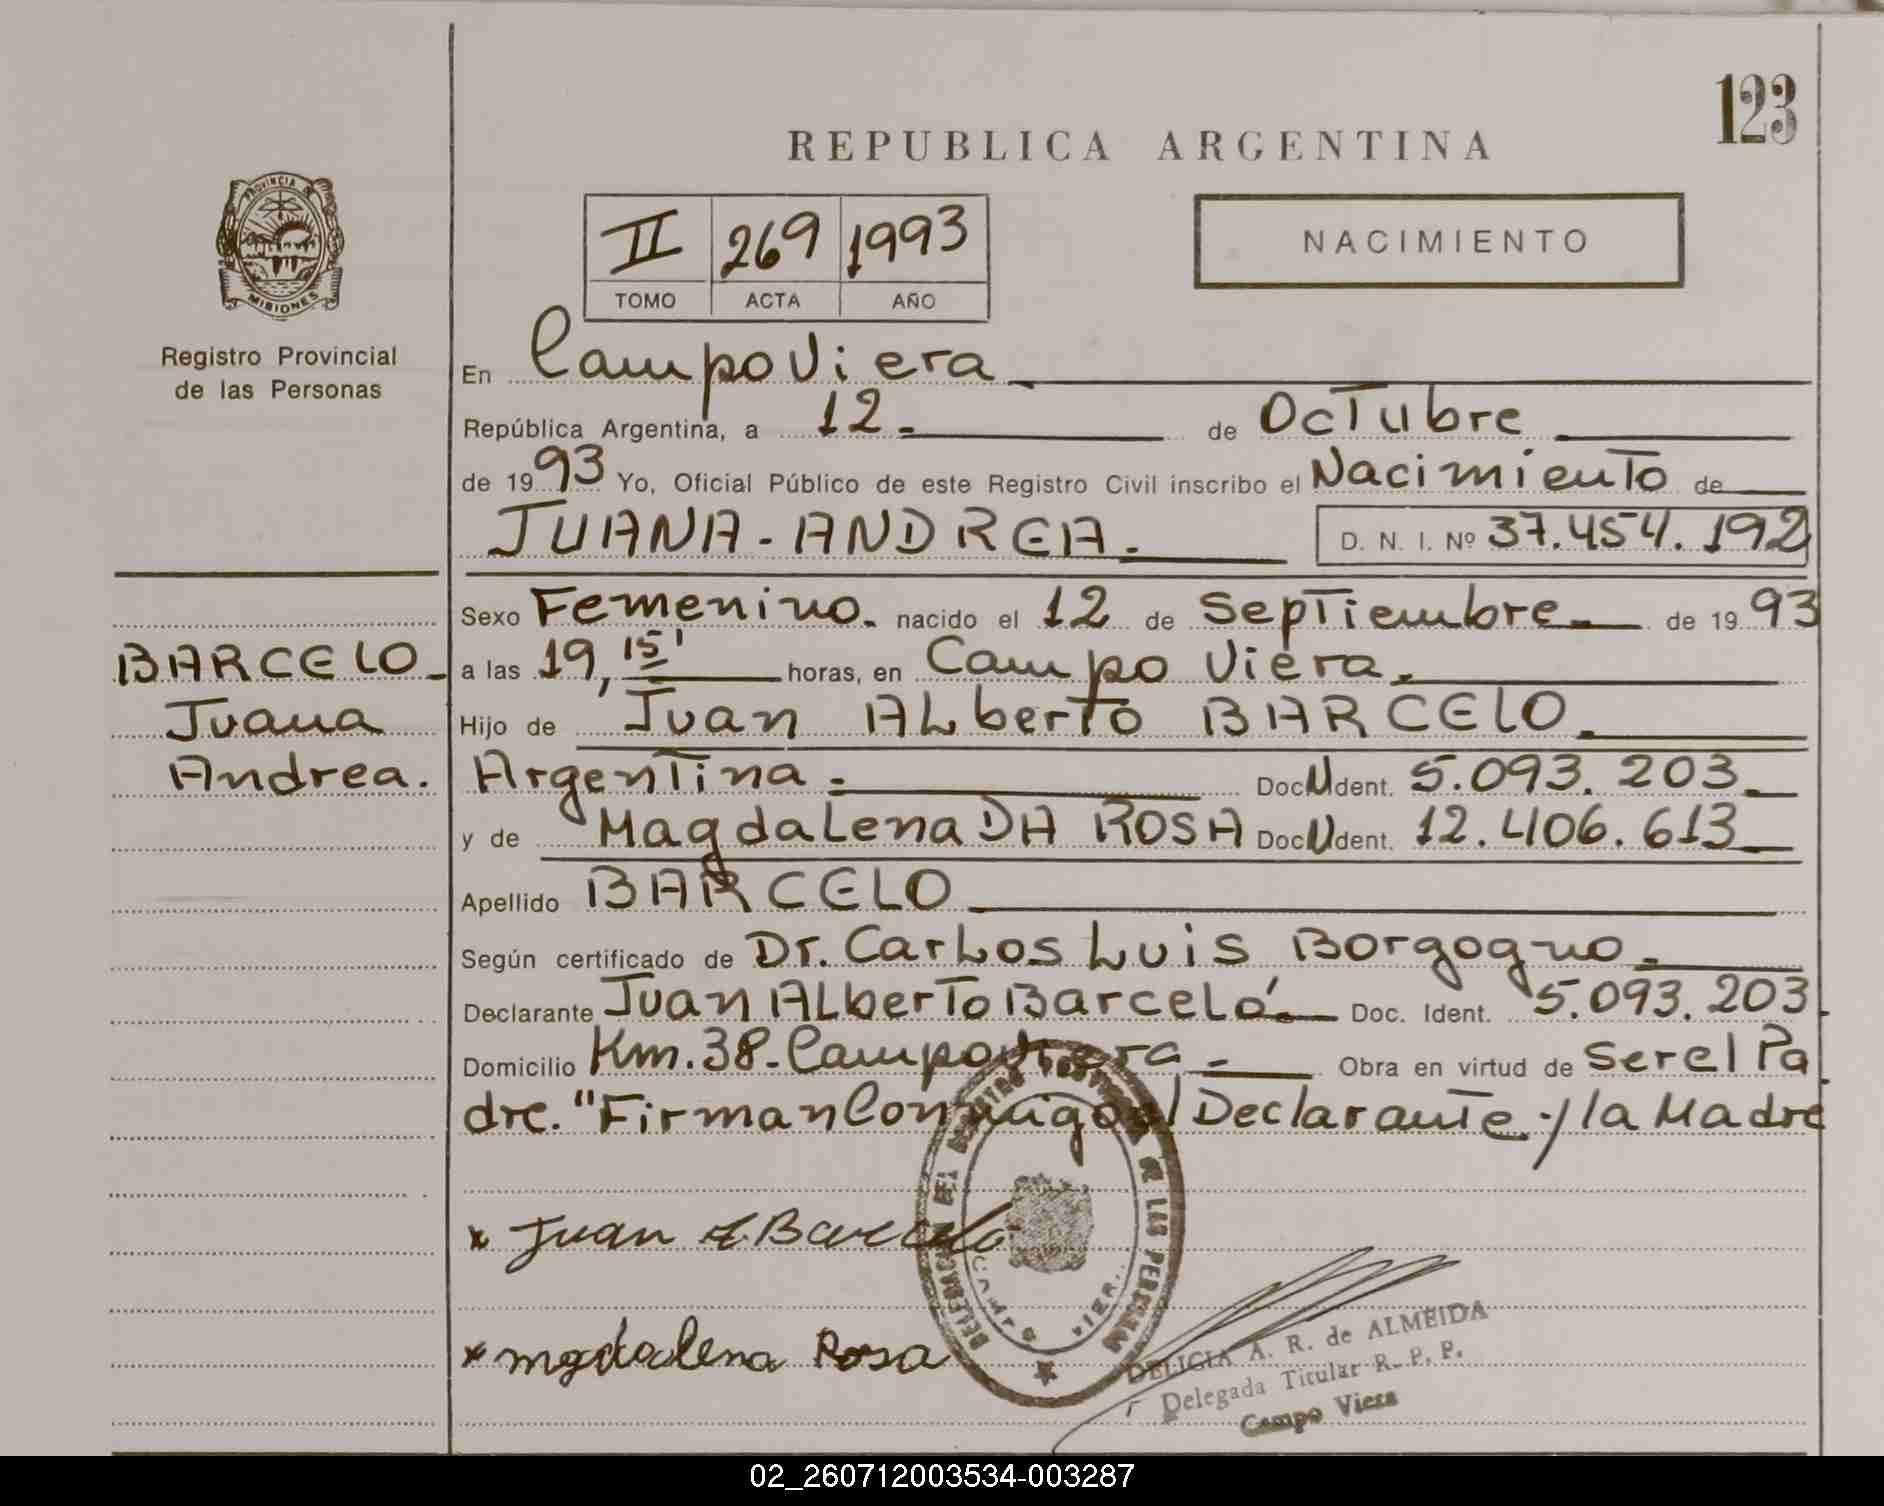 123
REPUBLICA ARGENTINA
PROVINCIA DE
MISIONES
Registro Provincial
de las Personas
II 269 1993
TOMO ACTA AÑO
NACIMIENTO
En Campo Viera
República Argentina, a 12 de Octubre
de 1993 Yo, Oficial Público de este Registro Civil inscribo el Nacimiento de
JUANA - ANDREA. D. N. I. Nº 37.454.192
Sexo Femenino. nacido el 12 de Septiembre de 1993
BARCELO
Juana
Andrea.
a las 19, 15' horas, en Campo Viera.
Hijo de Juan ALberto BARCELO
Argentina. Doc U dent. 5.093.203
y de MagdaLena DA ROSA Doc U dent. 12.406.613
Apellido BARCELO
Según certificado de Dr. CarLos Luis Borgogno.
Declarante Juan ALberto BarceLó. Doc. Ident. 5.093.203.
Domicilio Km. 38 - Campo Viera - Obra en virtud de Ser el Pa
dre. "Firman Conmigo el Declarante y la Madre
x Juan A. Barceló
x mgdalena Rosa
DELEGACION DEL REGISTRO PROVINCIAL DE LAS PERSONAS
CAMPO VIERA
DELICIA A. R. de ALMEIDA
Delegada Titular R. P. P.
Campo Viera
02_260712003534-003287